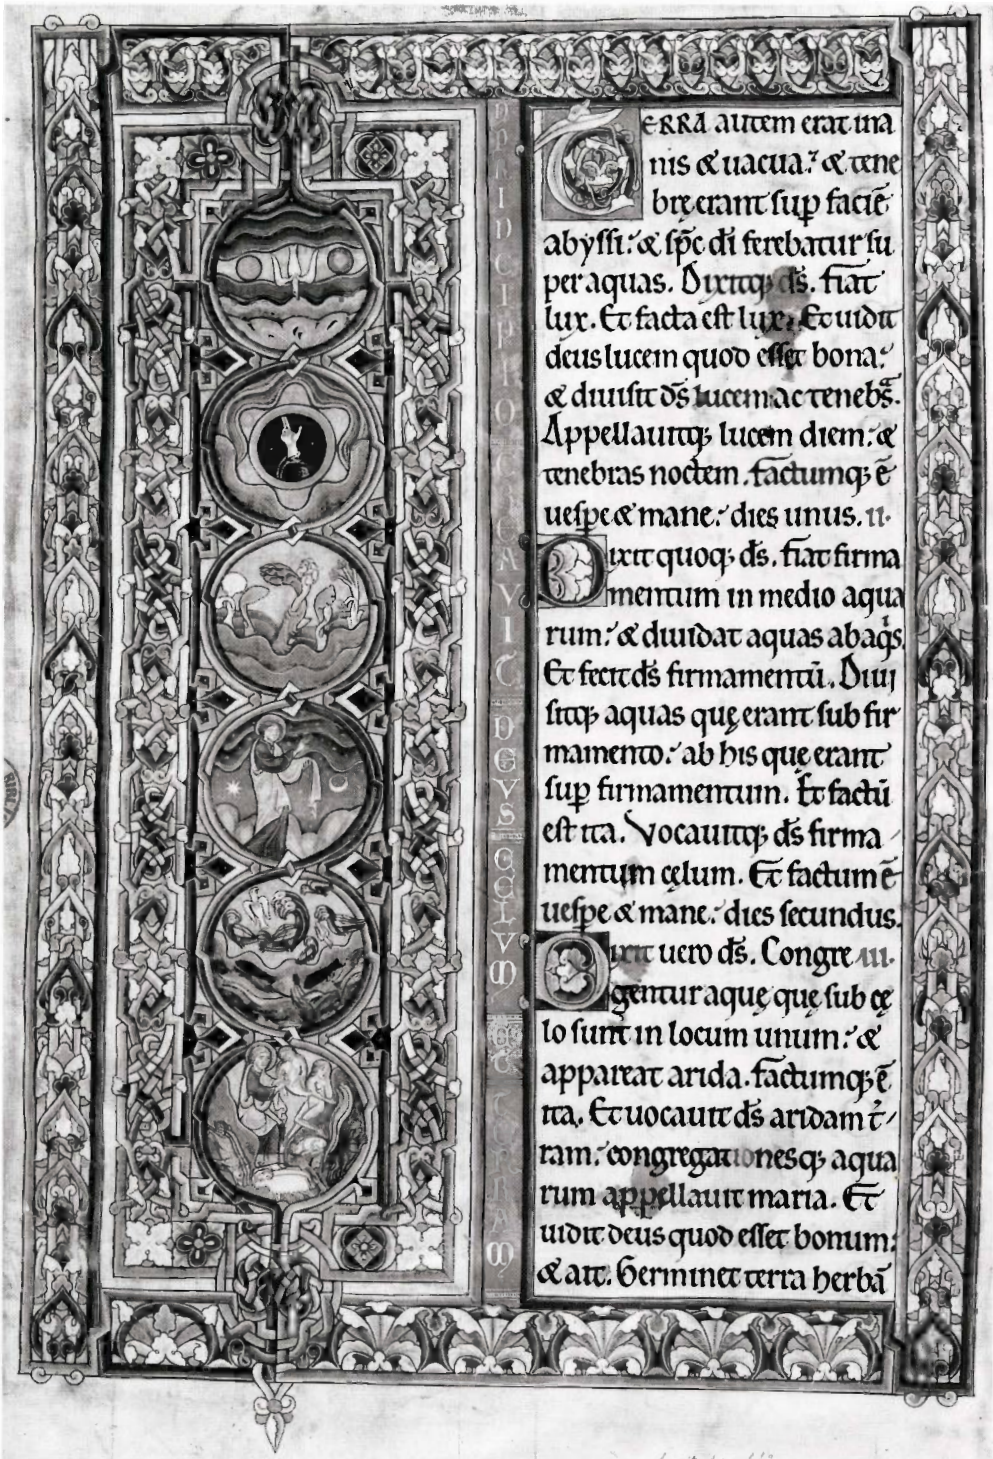 IN PRINCIPIO CREAVIT DEVS CELVM ET TERRAM
TERRA autem erat ina
nis & uacua: & tene
bre̜ erant sup facie̅
abyssi: & sp̅c di̅ ferebatur su
per aquas. Dixitq; ds̅. fiat
lux. Et facta est lux. Et uidit
deus lucem quod esset bona:
& diuisit ds̅ lucem ac tenebs̅.
Appellauitq; lucem diem: &
tenebras noctem. factumq; e̅
uespe & mane: dies unus. II.
Dixit quoq; ds̅. fiat firma
mentum in medio aqua
rum: & diuidat aquas ab aq̅s.
Et fecit ds̅ firmamentu̅. Diui
sitq; aquas que̜ erant sub fir
mamento: ab his que̜ erant
sup firmamentum. Et factu̅
est ita. Vocauitq; ds̅ firma
mentum ce̜lum. Et factum e̅
uespe & mane: dies secundus.
Dixit uero ds̅. Congre III.
gentur aque̜ que̜ sub ce̜
lo sunt in locum unum: &
appareat arida. factumq; e̅
ita. Et uocauit ds̅ aridam t̅
ram: congregationesq; aqua
rum appellauit maria. Et
uidit deus quod esset bonum:
& ait. Germinet terra herba̅